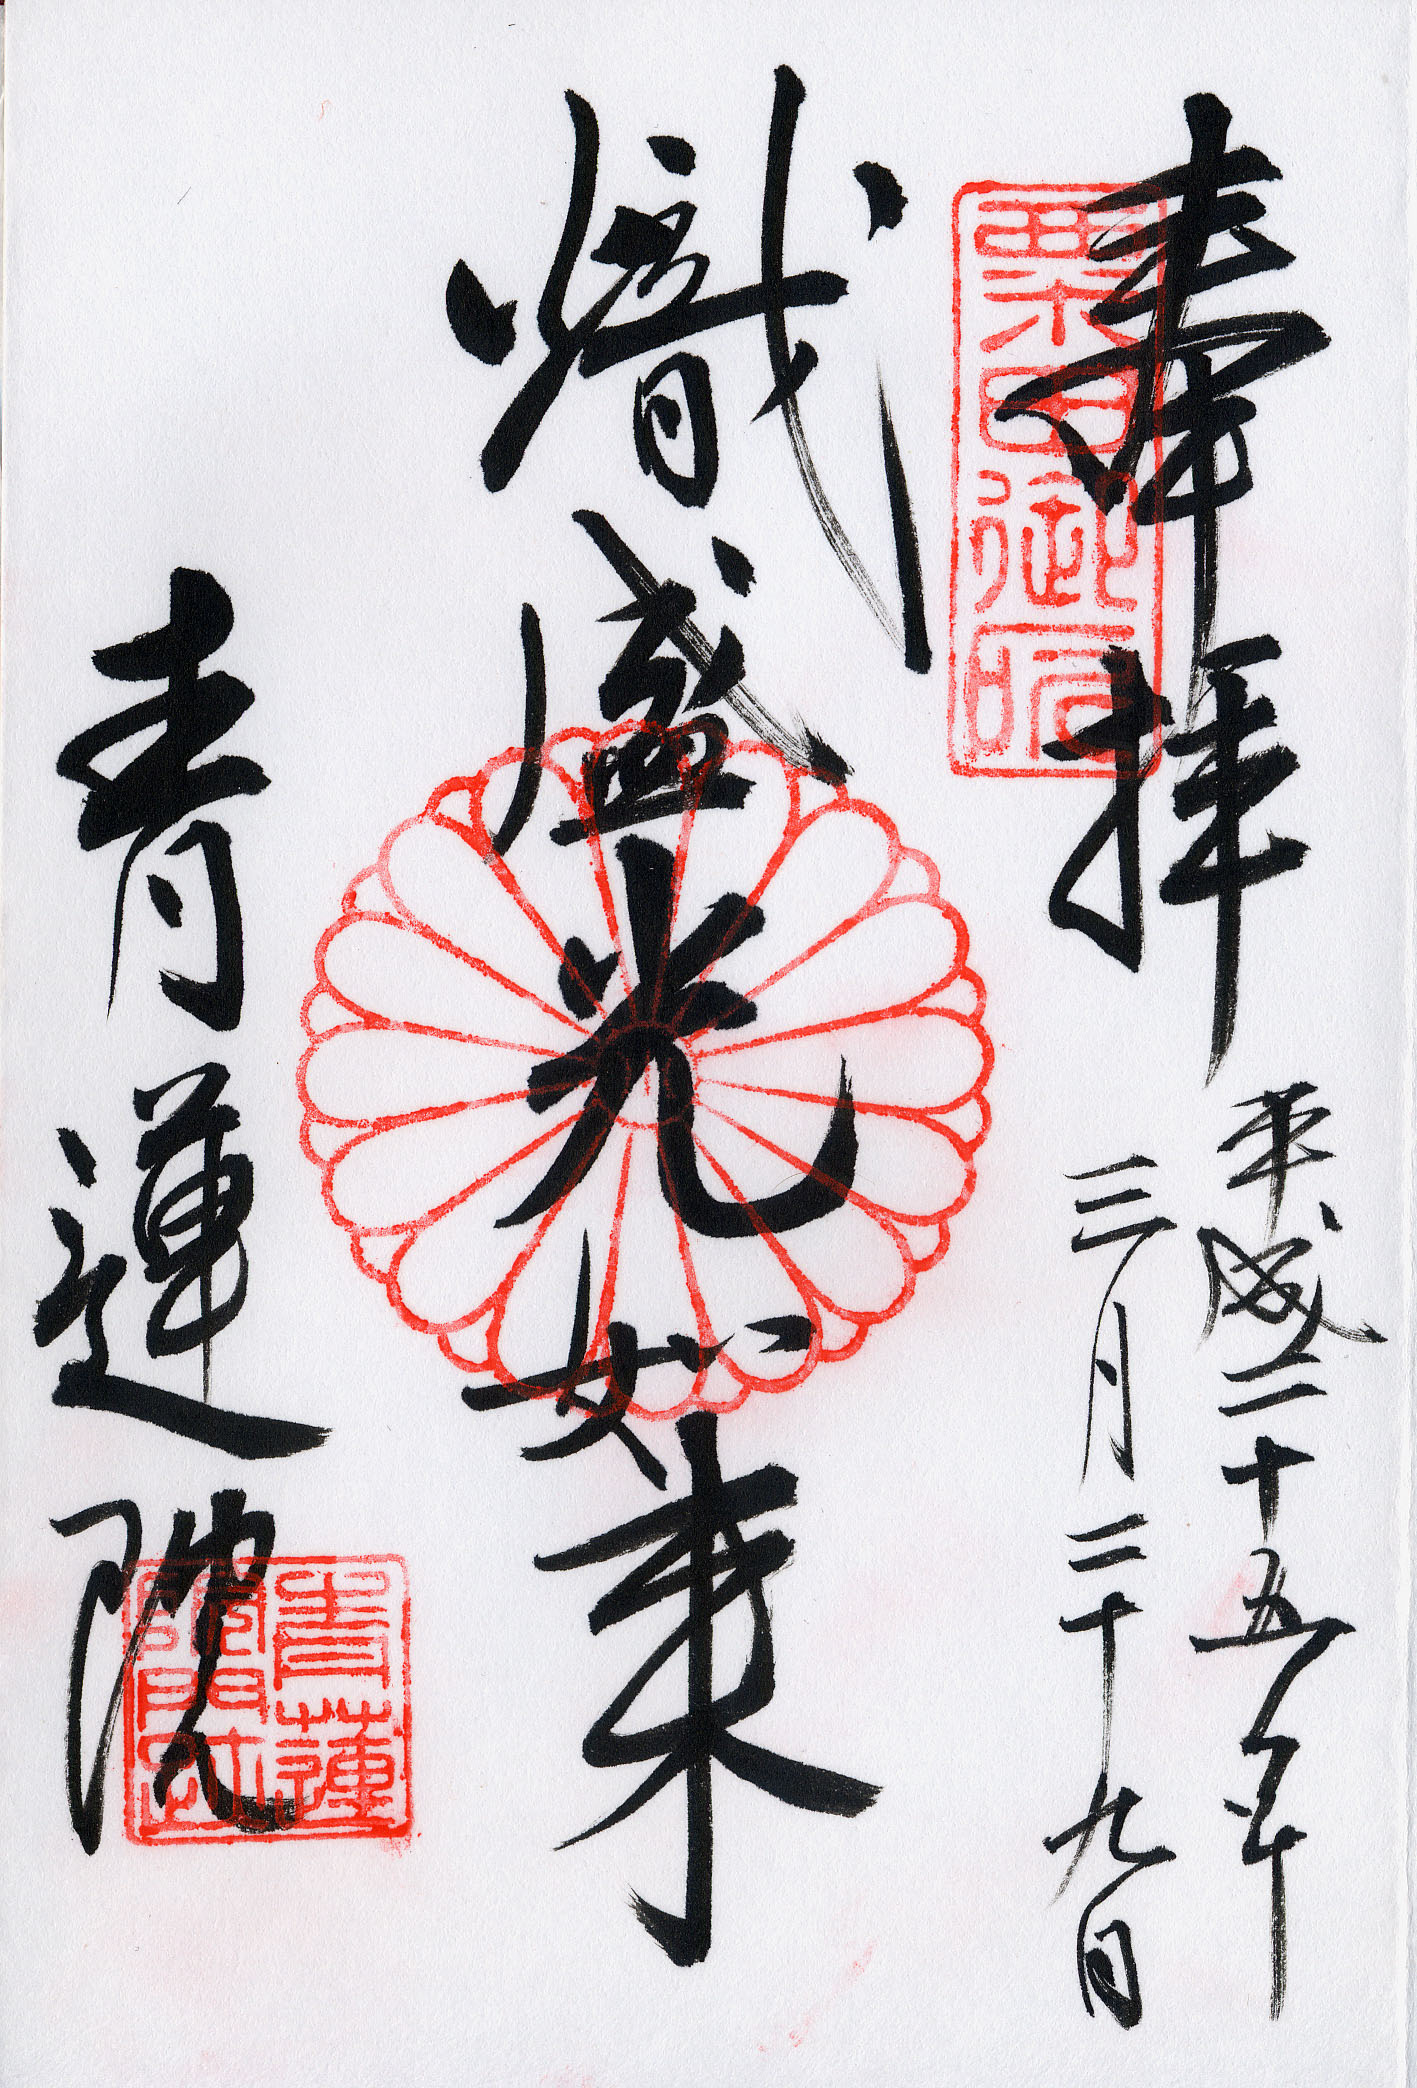 奉拝
平成二十五年
三月二十九日
熾盛光如来
青蓮院
粟田御所
青蓮
院門跡